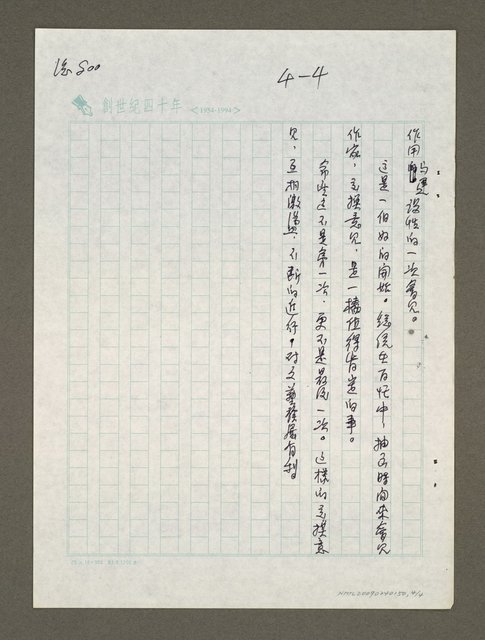 總800
4-4
創世紀四十年 <1954-1994>
作用與建設性的一次會見。
這是一個好的開始。總統在百忙中,抽出時間來會見
作家,交換意見,是一樁值得肯定的事。
會談這不是第一次,更不是最後一次。這樣的交換意
見,互相激盪,不斷的進行,對文藝發展有利
NMTL20090240150, 4/4